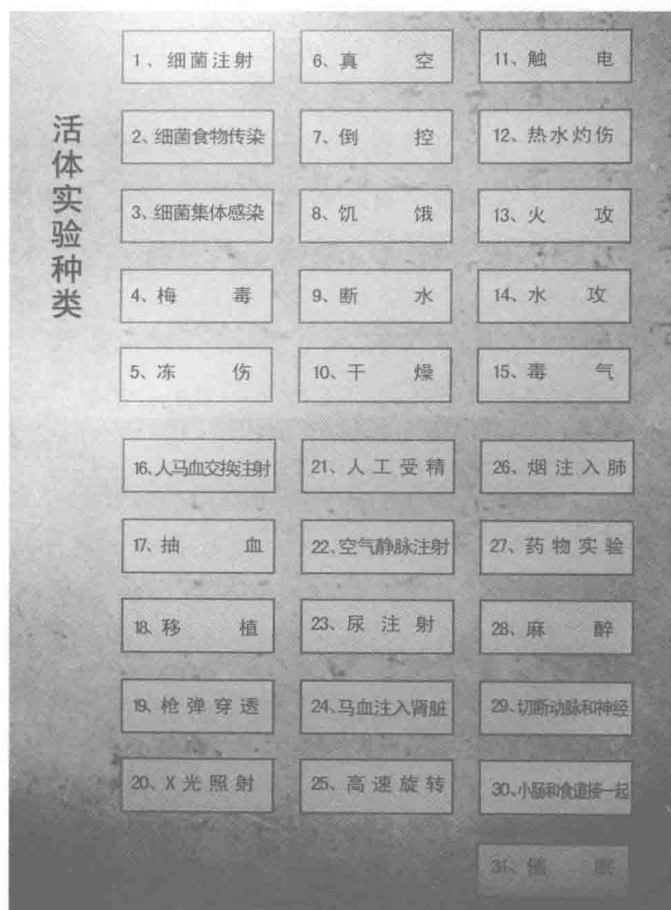 活体实验种类
1、细菌注射
2、细菌食物传染
3、细菌集体感染
4、梅毒
5、冻伤
6、真空
7、倒控
8、饥饿
9、断水
10、干燥
11、触电
12、热水灼伤
13、火攻
14、水攻
15、毒气
16、人马血交换注射
17、抽血
18、移植
19、枪弹穿透
20、X光照射
21、人工受精
22、空气静脉注射
23、尿注射
24、马血注入肾脏
25、高速旋转
26、烟注入肺
27、药物实验
28、麻醉
29、切断动脉和神经
30、小肠和食道接一起
31、催眠